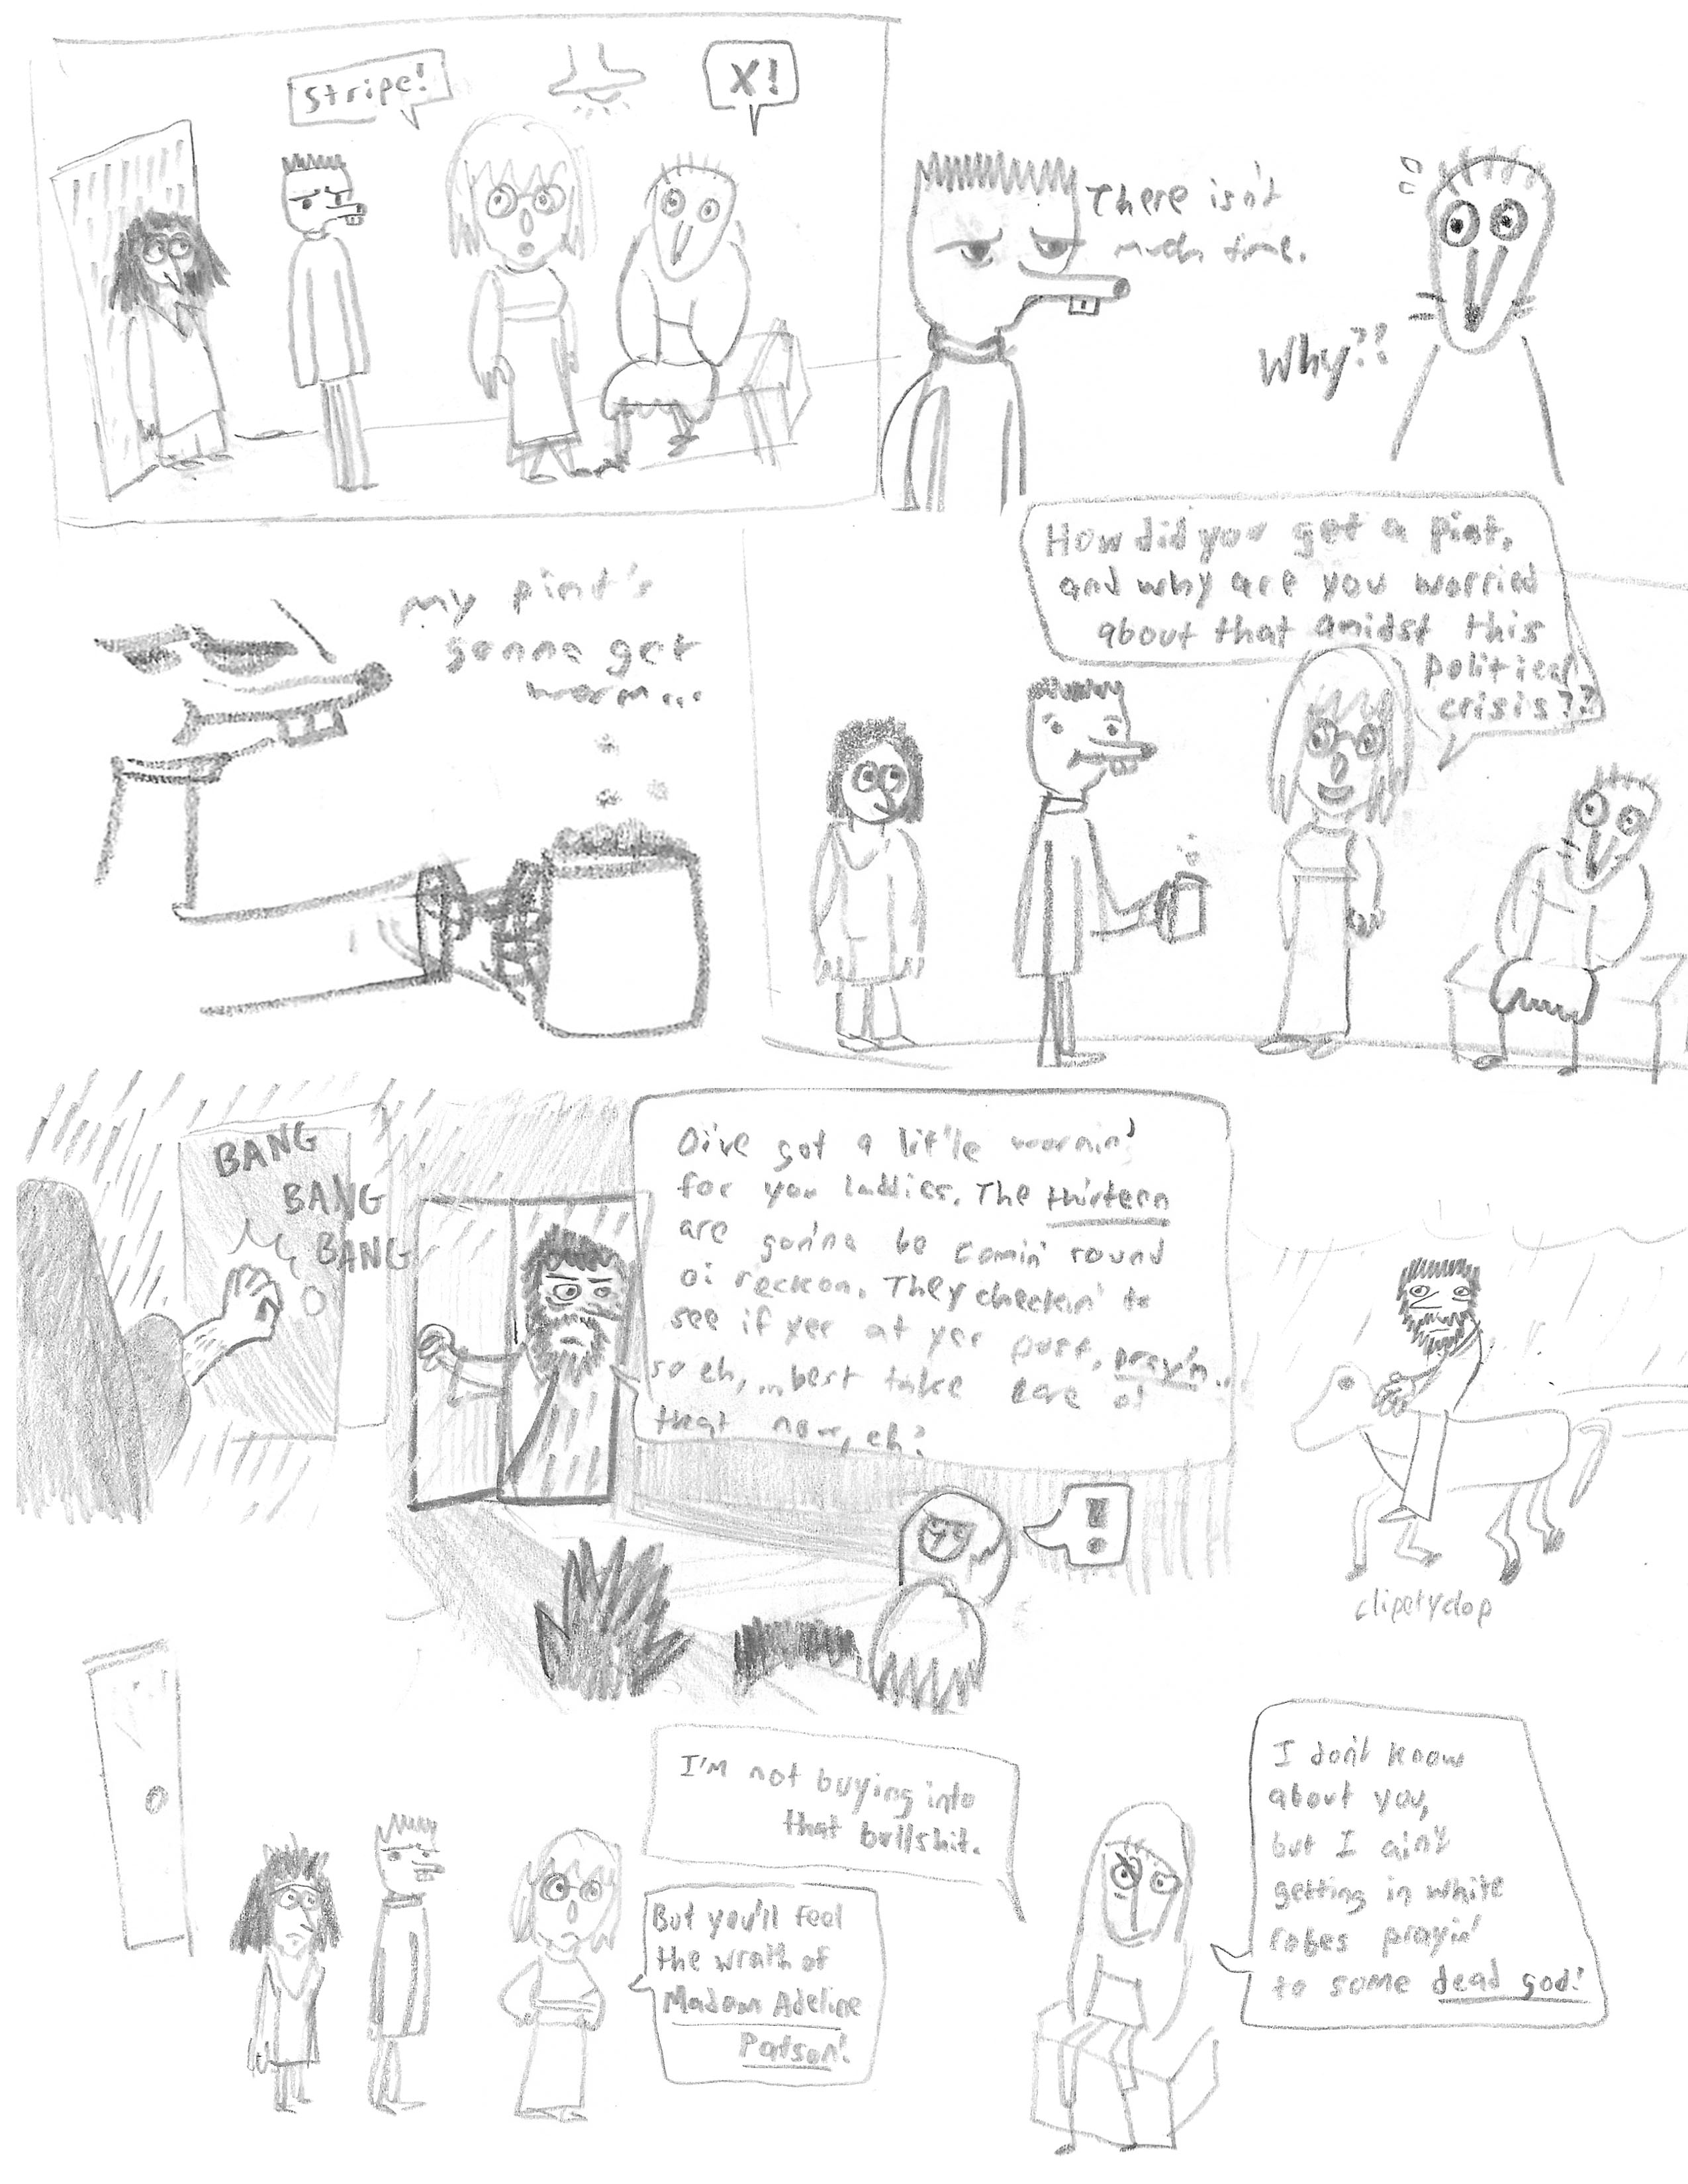 Stripe!
X!
There isn't
much time.
Why?!
My pint's
gonna get
warm...
How did you get a pint,
and why are you worried
about that amidst this
political
crisis??
BANG
BANG
BANG
Oi've got a lit'le warnin'
for you laddies. The thirteen
are gonna be comin' round
oi reckon. They checkin' to
see if yer at yer post, pray'n.
so eh, best take care of
that now, eh?
!
clipetyclop
I'M not buying into
that bullshit.
But you'll feel
the wrath of
Madam Adeline
Parson!
I don't know
about you,
but I ain't
getting in white
robes prayin'
to some dead god!